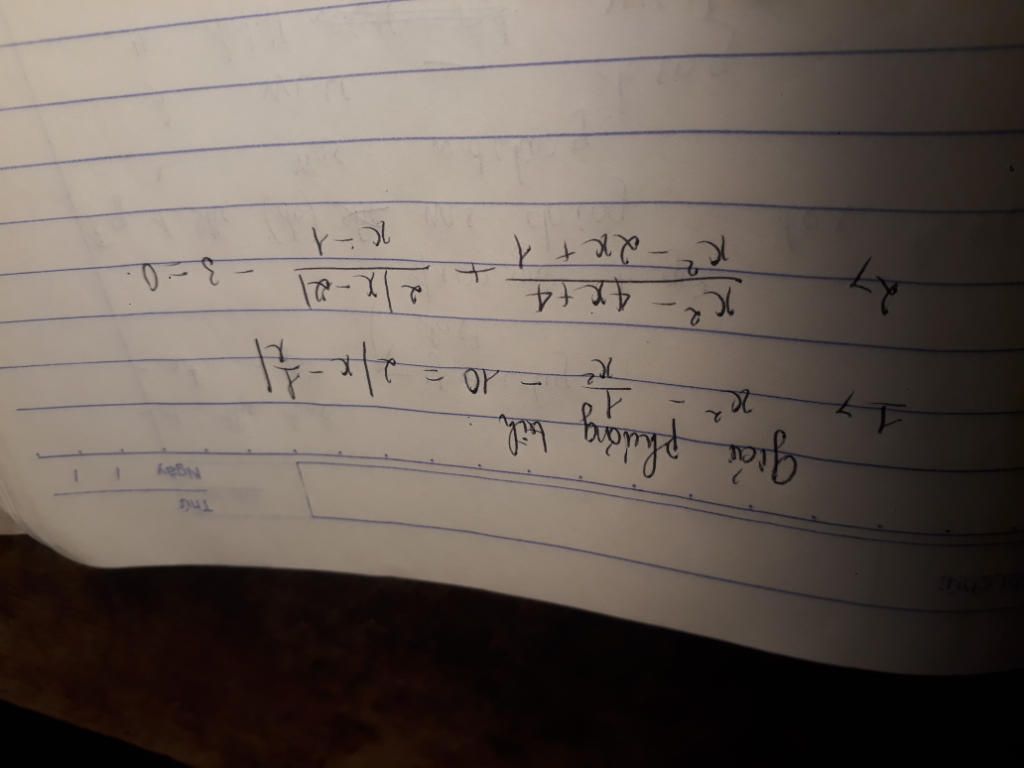 Thứ
Ngày
Giải phương trình
1> x² - 1/x² - 10 = 2|x - 1/x|
2> (x² - 4x + 4)/(x² - 2x + 1) + 2|x - 2|/(x - 1) - 3 = 0.